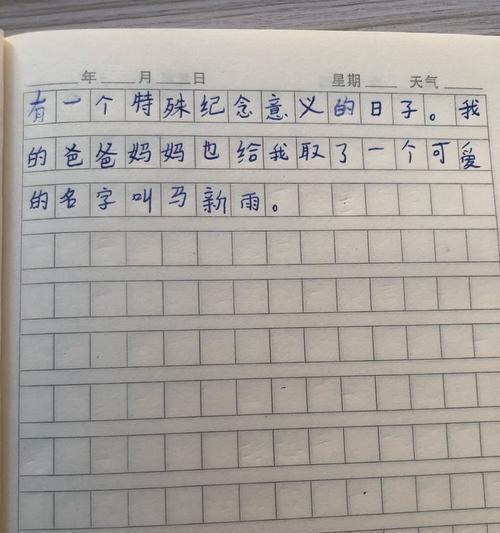 年 月 日 星期 天气
有一个特殊纪念意义的日子。我
的爸爸妈妈也给我取了一个可爱
的名字叫马新雨。